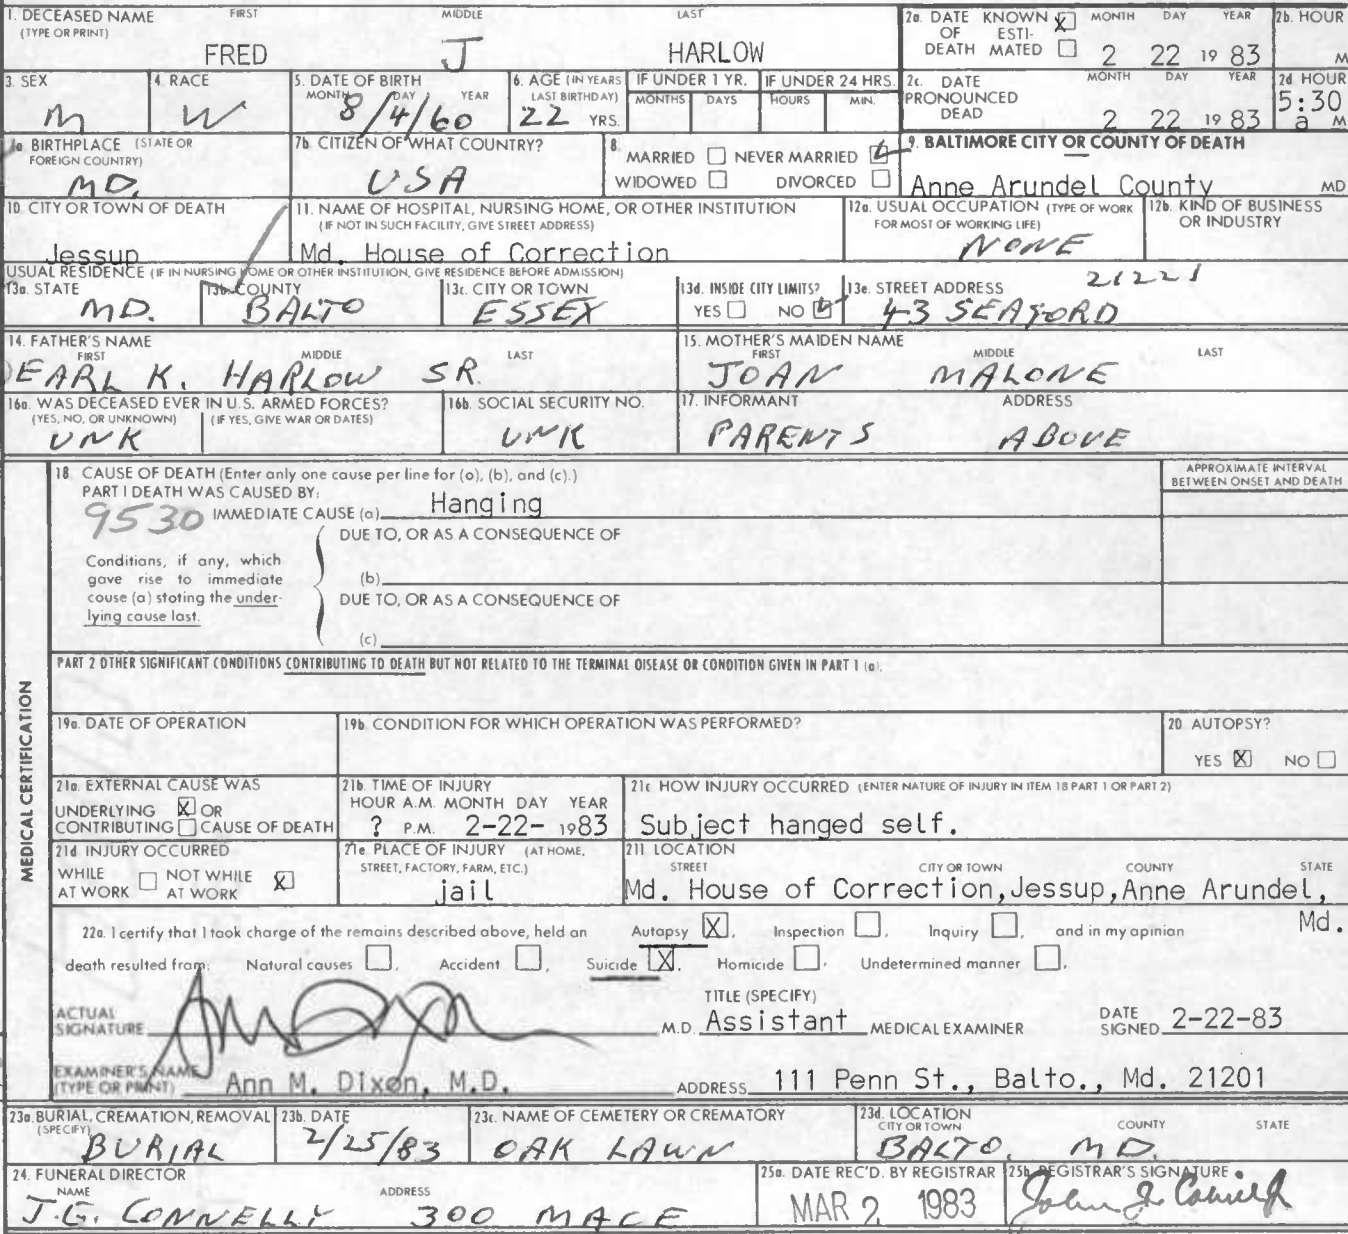 1. DECEASED NAME FIRST MIDDLE LAST
(TYPE OR PRINT)
FRED J HARLOW
2a. DATE KNOWN X MONTH DAY YEAR
OF ESTI-
DEATH MATED 2 22 19 83
2b. HOUR
M
3. SEX
M
4. RACE
W
5. DATE OF BIRTH
MONTH DAY YEAR
8/4/60
6. AGE (IN YEARS
LAST BIRTHDAY)
22 YRS.
IF UNDER 1 YR.
MONTHS DAYS
IF UNDER 24 HRS.
HOURS MIN.
2c. DATE MONTH DAY YEAR
PRONOUNCED
DEAD 2 22 19 83
2d HOUR
5:30
a M
7a. BIRTHPLACE (STATE OR
FOREIGN COUNTRY)
MD.
7b. CITIZEN OF WHAT COUNTRY?
USA
8.
MARRIED NEVER MARRIED
WIDOWED DIVORCED
9. BALTIMORE CITY OR COUNTY OF DEATH
Anne Arundel County MD
10. CITY OR TOWN OF DEATH
Jessup
11. NAME OF HOSPITAL, NURSING HOME, OR OTHER INSTITUTION
(IF NOT IN SUCH FACILITY, GIVE STREET ADDRESS)
Md. House of Correction
12a. USUAL OCCUPATION (TYPE OF WORK
FOR MOST OF WORKING LIFE)
NONE
12b. KIND OF BUSINESS
OR INDUSTRY
USUAL RESIDENCE (IF IN NURSING HOME OR OTHER INSTITUTION, GIVE RESIDENCE BEFORE ADMISSION)
13a. STATE
MD.
13b. COUNTY
BALTO
13c. CITY OR TOWN
ESSEX
13d. INSIDE CITY LIMITS?
YES NO
13e. STREET ADDRESS 21221
43 SEAFORD
14. FATHER'S NAME
FIRST MIDDLE LAST
EARL K. HARLOW SR.
15. MOTHER'S MAIDEN NAME
FIRST MIDDLE LAST
JOAN MALONE
16a. WAS DECEASED EVER IN U.S. ARMED FORCES?
(YES, NO, OR UNKNOWN) (IF YES, GIVE WAR OR DATES)
UNK
16b. SOCIAL SECURITY NO.
UNK
17. INFORMANT ADDRESS
PARENTS ABOVE
MEDICAL CERTIFICATION
18. CAUSE OF DEATH (Enter only one cause per line for (a), (b), and (c).)
PART I DEATH WAS CAUSED BY:
9530 IMMEDIATE CAUSE (a) Hanging
APPROXIMATE INTERVAL
BETWEEN ONSET AND DEATH
DUE TO, OR AS A CONSEQUENCE OF
Conditions, if any, which
gave rise to immediate
cause (a) stating the under-
lying cause last.
(b)
DUE TO, OR AS A CONSEQUENCE OF
(c)
PART 2 OTHER SIGNIFICANT CONDITIONS CONTRIBUTING TO DEATH BUT NOT RELATED TO THE TERMINAL DISEASE OR CONDITION GIVEN IN PART 1 (a).
19a. DATE OF OPERATION
19b. CONDITION FOR WHICH OPERATION WAS PERFORMED?
20. AUTOPSY?
YES X NO
21a. EXTERNAL CAUSE WAS
UNDERLYING X OR
CONTRIBUTING CAUSE OF DEATH
21b. TIME OF INJURY
HOUR A.M. MONTH DAY YEAR
? P.M. 2-22- 1983
21c HOW INJURY OCCURRED (ENTER NATURE OF INJURY IN ITEM 18 PART 1 OR PART 2)
Subject hanged self.
21d INJURY OCCURRED
WHILE NOT WHILE
AT WORK AT WORK X
21e. PLACE OF INJURY (AT HOME,
STREET, FACTORY, FARM, ETC.)
jail
21f. LOCATION
STREET CITY OR TOWN COUNTY STATE
Md. House of Correction, Jessup, Anne Arundel,
Md.
22a. I certify that I took charge of the remains described above, held an Autopsy X, Inspection , Inquiry , and in my opinion
death resulted from: Natural causes , Accident , Suicide X, Homicide , Undetermined manner ,
ACTUAL
SIGNATURE M.D.
TITLE (SPECIFY)
Assistant MEDICAL EXAMINER
DATE
SIGNED 2-22-83
EXAMINER'S NAME
(TYPE OR PRINT) Ann M. Dixon, M.D.
ADDRESS 111 Penn St., Balto., Md. 21201
23a. BURIAL, CREMATION, REMOVAL
(SPECIFY)
BURIAL
23b. DATE
2/25/83
23c. NAME OF CEMETERY OR CREMATORY
OAK LAWN
23d. LOCATION
CITY OR TOWN COUNTY STATE
BALTO. MD.
24. FUNERAL DIRECTOR
NAME ADDRESS
J.G. CONNELLY 300 MACE
25a. DATE REC'D. BY REGISTRAR
MAR 2 1983
25b. REGISTRAR'S SIGNATURE